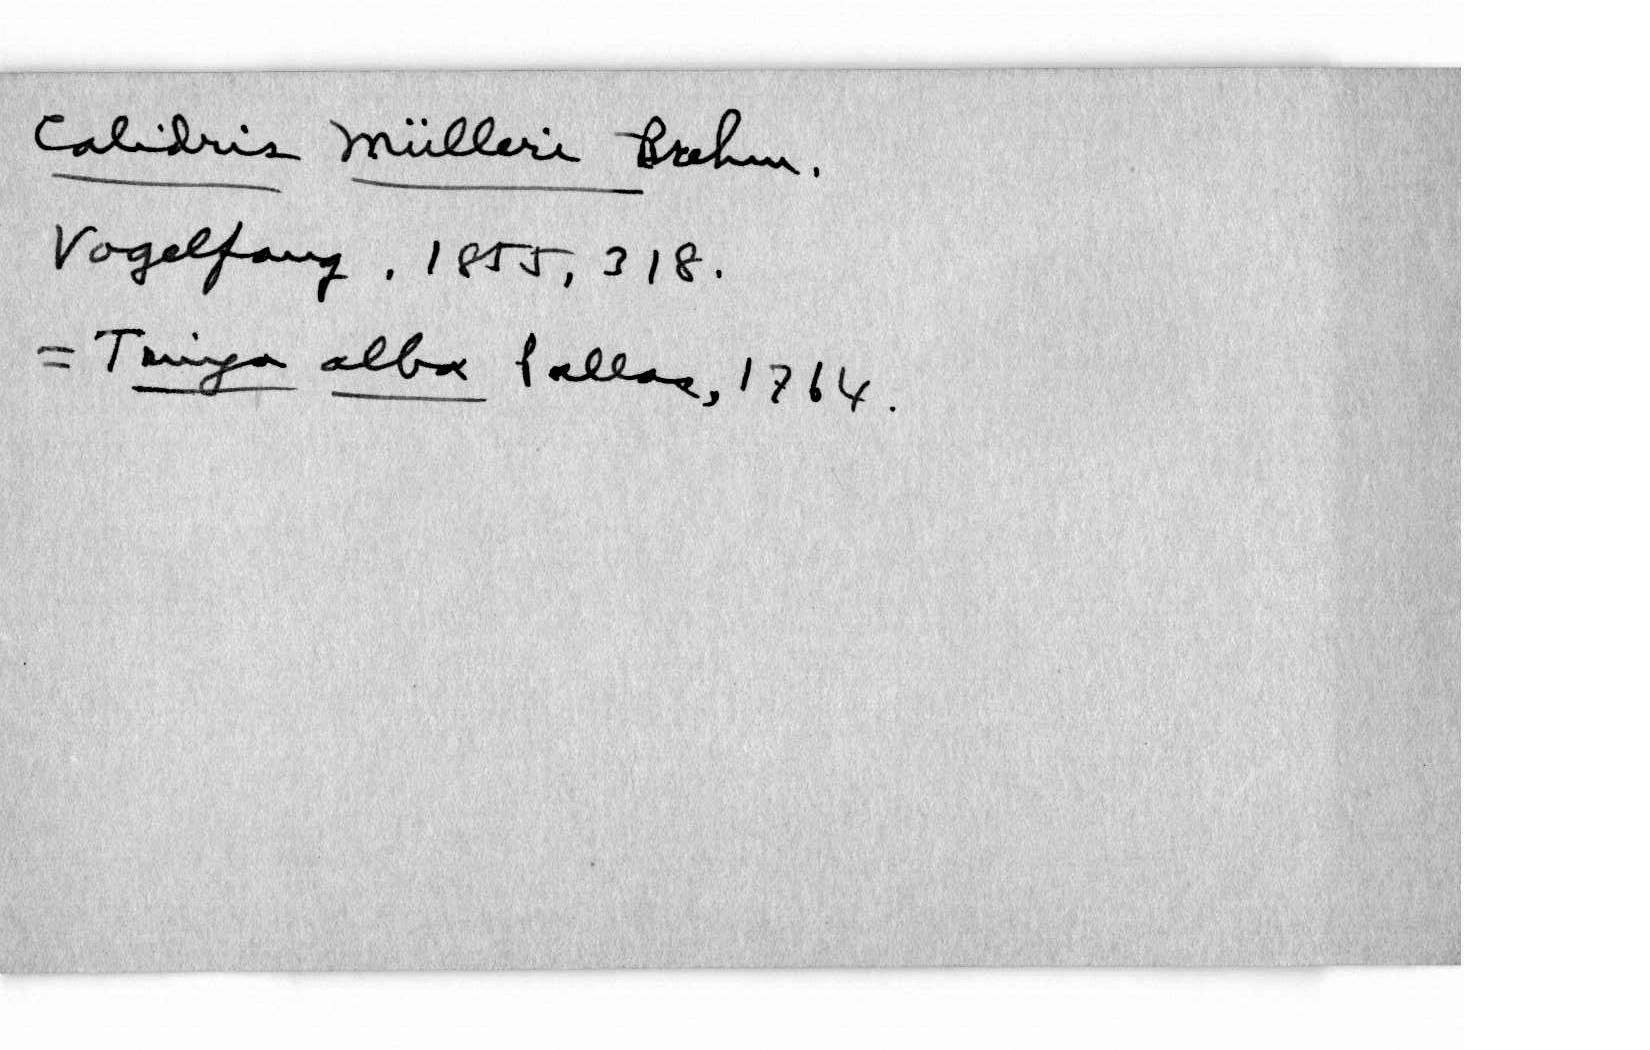 Calidris Mülleri Brehm.
Vogelfang, 1855, 318.
= Tringa alba Pallas, 1764.